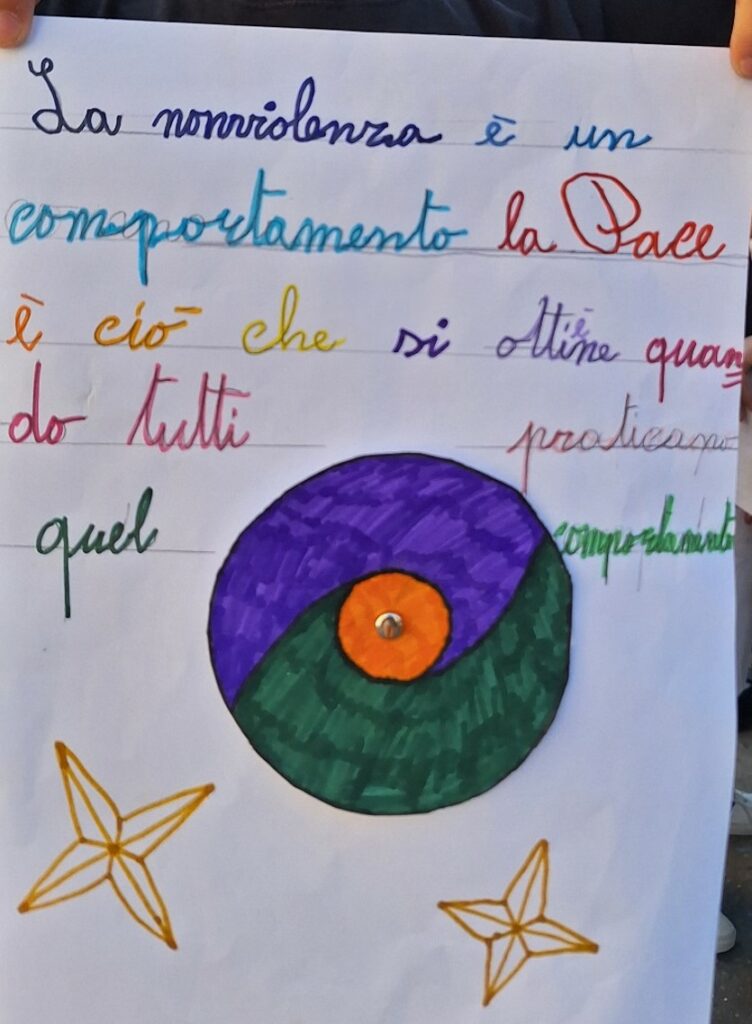 La nonviolenza è un
comportamento la Pace
è ciò che si ottiene quan
do tutti praticano
quel comportamento